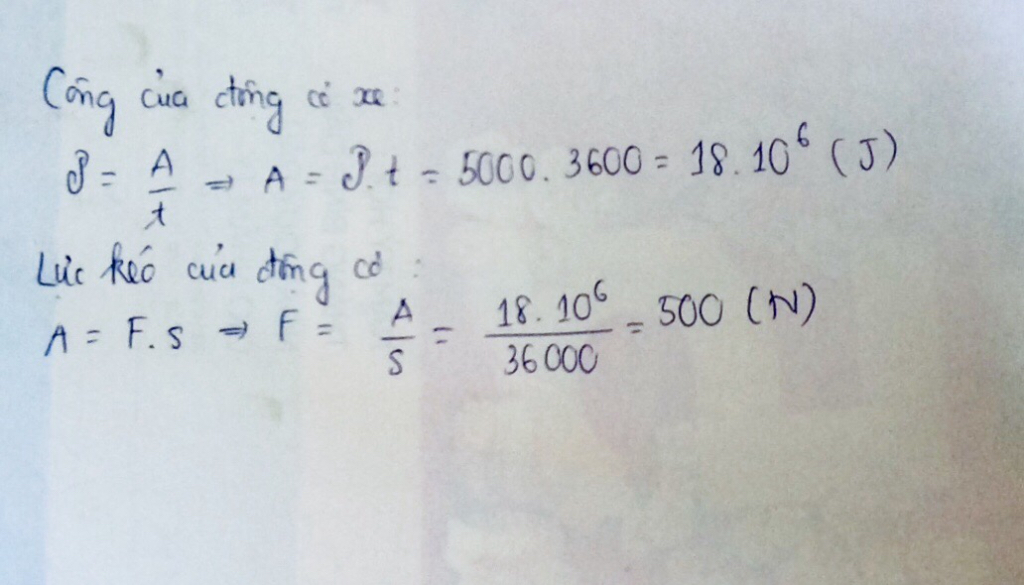 Công của động cơ xe:
𝒫 = A/t ⇒ A = 𝒫.t = 5000. 3600 = 18. 10⁶ (J)
Lực kéo của động cơ :
A = F.s ⇒ F = A/s = 18. 10⁶/36000 = 500 (N)